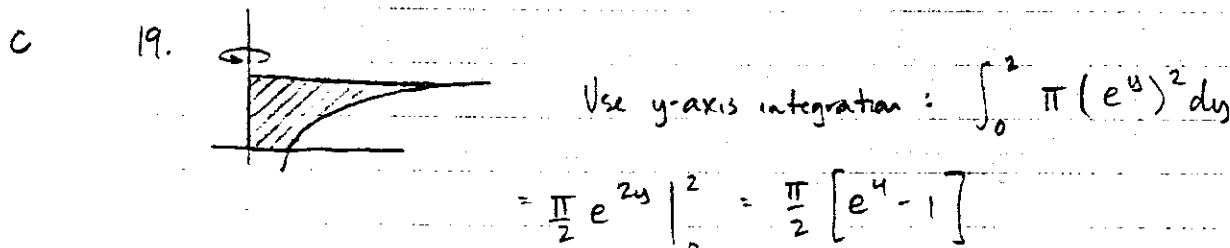 C 19. Use y-axis integration : ∫₀² π(e^y)² dy
= π/2 e^{2y} |₀² = π/2 [e⁴ - 1]